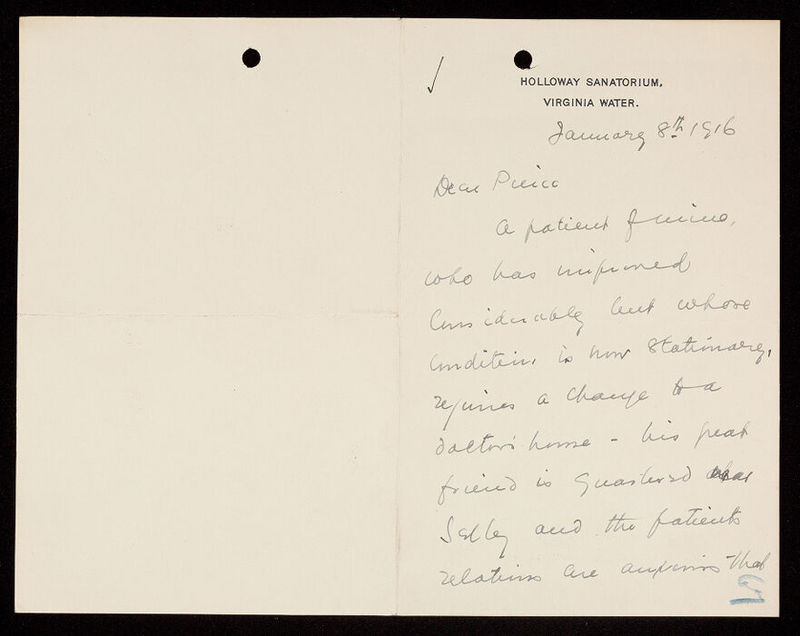 HOLLOWAY SANATORIUM,
VIRGINIA WATER.
January 8th 1916
Dear Pierce
A patient of mine,
who has improved
considerably but whose
condition, is now stationary,
requires a change to a
doctor's house - his great
friend is quartered near
Selby and the patients
relations are anxious that